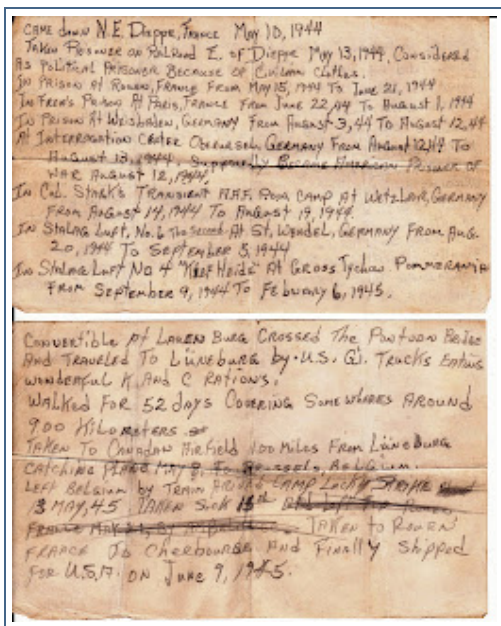 CAME DOWN N.E. DIEPPE, FRANCE MAY 10, 1944
TAKEN PRISONER ON RAILROAD E. OF DIEPPE MAY 13, 1944, CONSIDERED
AS POLITICAL PRISONER BECAUSE OF CIVILIAN CLOTHES.
IN PRISON AT ROUEN, FRANCE FROM MAY 15, 1944 TO JUNE 21, 1944
IN FRENS PRISON AT PARIS, FRANCE FROM JUNE 22, 44 TO AUGUST 1, 1944
IN PRISON AT WEISBADEN, GERMANY FROM AUGUST 3, 44 TO AUGUST 12, 44
AT INTERROGATION CENTER OBERURSEL, GERMANY FROM AUGUST 12, 44 TO
AUGUST 13, 1944. SUPPOSEDLY BECAME AMERICAN PRISONER OF
WAR AUGUST 12, 1944.
IN COL. STARK'S TRANSIENT A.A.F. P.O.W. CAMP AT WETZLAR, GERMANY
FROM AUGUST 14, 1944 TO AUGUST 19, 1944.
IN STALAG LUFT, NO. 6 THE SECOND AT ST. WENDEL, GERMANY FROM AUG.
20, 1944 TO SEPTEMBER 5, 1944
IN STALAG LUFT NO 4 "KIEF HEIDE" AT GROSS TYCHOW POMMERANIA
FROM SEPTEMBER 9, 1944 TO FEBUARY 6, 1945.
CONVERTIBLE AT LAUEN BURG CROSSED THE PONTOON BRIDGE
AND TRAVELED TO LÜNEBURG by U.S. GI. TRUCKS EATING
WONDERFUL K AND C RATIONS.
WALKED FOR 52 DAYS COVERING SOMEWHERES AROUND
900 KILOMETERS.
TAKEN TO CANADIAN AIRFIELD 100 MILES FROM LÜNEBURG
CATCHING PLANE MAY 8, TO BRUSSELS, BELGIUM.
LEFT BELGIUM by TRAIN CAMP LUCKY STRIKE
13 MAY, 45 TAKEN SICK 15th AND LEFT
FRANCE MAY TAKEN TO ROUEN
FRANCE TO CHERBOURG AND FINALLY SHIPPED
FOR U.S.A. ON JUNE 9, 1945.